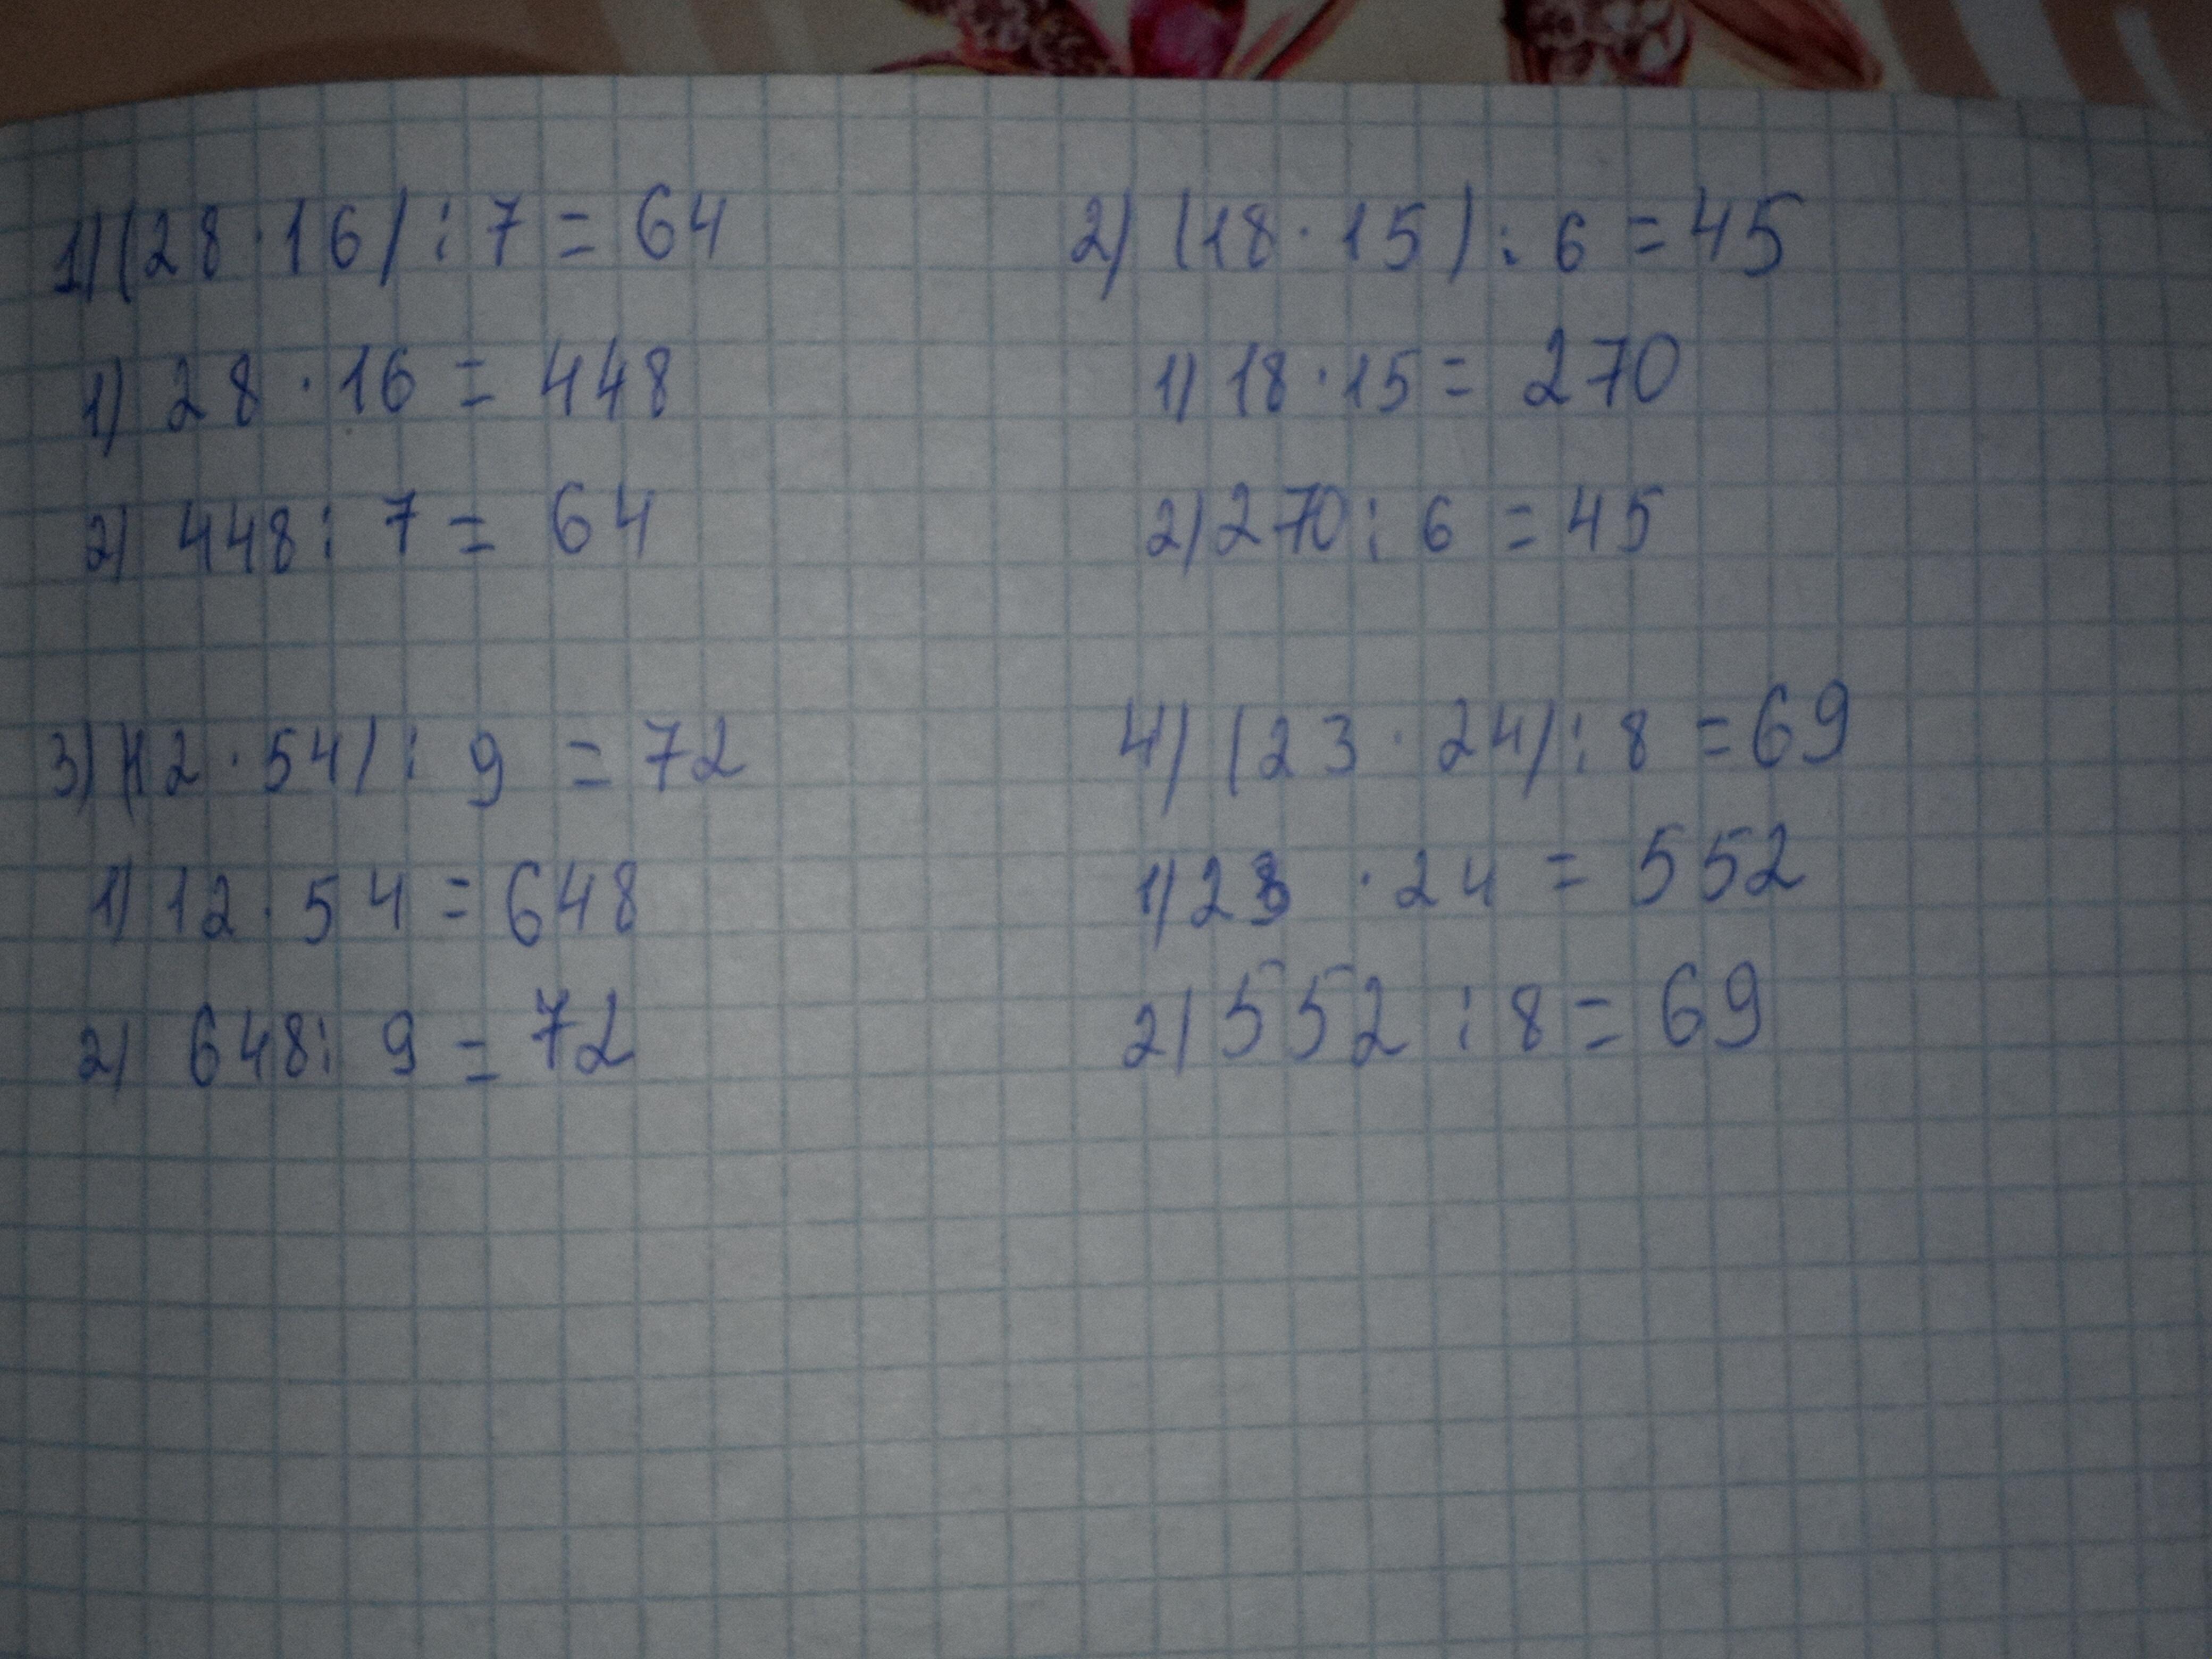 1) (28 · 16) : 7 = 64
1) 28 · 16 = 448
2) 448 : 7 = 64
2) (18 · 15) : 6 = 45
1) 18 · 15 = 270
2) 270 : 6 = 45
3) (12 · 54) : 9 = 72
1) 12 · 54 = 648
2) 648 : 9 = 72
4) (23 · 24) : 8 = 69
1) 23 · 24 = 552
2) 552 : 8 = 69